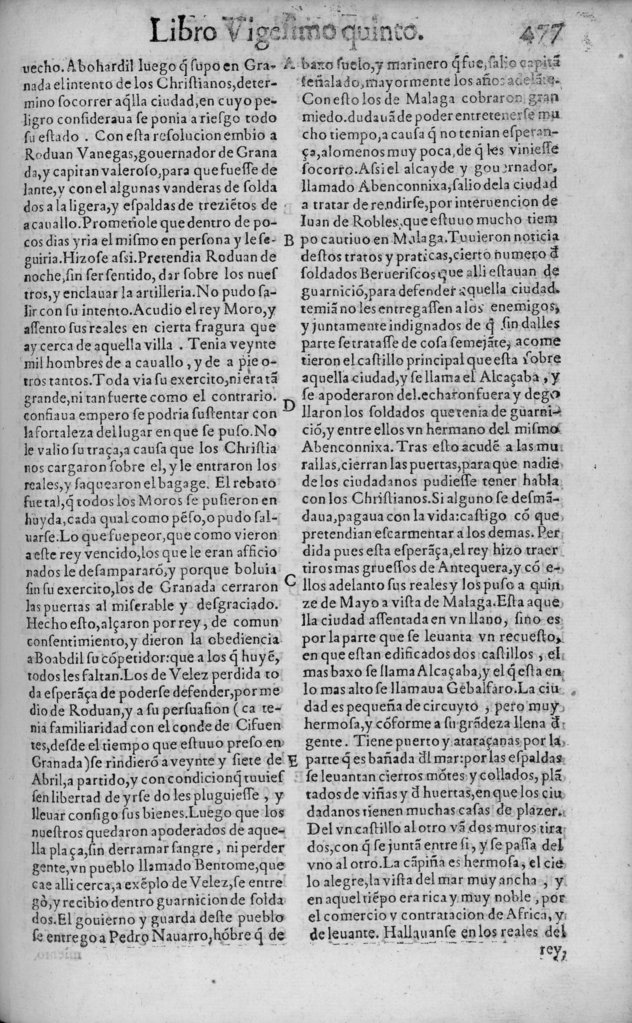 Libro Vigesimo quinto. 477
uecho. Abohardil luego q̃ supo en Gra-
nada el intento de los Christianos, deter-
mino socorrer aq̃lla ciudad, en cuyo pe-
ligro consideraua se ponia a riesgo todo
su estado. Con esta resolucion embio a
Roduan Vanegas, gouernador de Grana
da, y capitan valeroso, para que fuesse de
lante, y con el algunas vanderas de solda
dos a la ligera, y espaldas de treziẽtos de
a cauallo. Prometiole que dentro de po-
cos dias yria el mismo en persona y le se-
guiria. Hizose assi. Pretendia Roduan de
noche, sin ser sentido, dar sobre los nues
tros, y enclauar la artilleria. No pudo sa-
lir con su intento. Acudio el rey Moro, y
assento sus reales en cierta fragura que
ay cerca de aquella villa. Tenia veynte
mil hombres de a cauallo, y de a pie o-
tros tantos. Toda via su exercito, ni era tã
grande, ni tan fuerte como el contrario.
confiaua empero se podria sustentar con
la fortaleza del lugar en que se puso. No
le valio su traça, a causa que los Christia
nos cargaron sobre el, y le entraron los
reales, y saquearon el bagage. El rebato
fue tal, q̃ todos los Moros se pusieron en
huyda, cada qual como pẽso, o pudo sal-
uarse. Lo que fue peor, que como vieron
a este rey vencido, los que le eran afficio
nados le desampararõ, y porque boluia
sin su exercito, los de Granada cerraron
las puertas al miserable y desgraciado.
Hecho esto, alçaron por rey, de comun
consentimiento, y dieron la obediencia
a Boabdil su cõpetidor: que a los q̃ huyẽ,
todos les faltan. Los de Velez perdida to
da esperãça de poderse defender, por me
dio de Roduan, y a su persuasion (ca te-
nia familiaridad con el conde de Cifuen
tes, desde el tiempo que estuuo preso en
Granada) se rindierõ a veynte y siete de
Abril, a partido, y con condicion q̃ tuuies
sen libertad de yrse do les pluguiesse, y
lleuar consigo sus bienes. Luego que los
nuestros quedaron apoderados de aque-
lla plaça, sin derramar sangre, ni perder
gente, vn pueblo llamado Bentome, que
cae alli cerca, a exẽplo de Velez, se entre
gò, y recibio dentro guarnicion de solda
dos. El gouierno y guarda deste pueblo
se entrego a Pedro Nauarro, hõbre q̃ de
A
B
D
C
E
baxo suelo, y marinero q̃ fue, salio capitã
señalado, mayormente los años adelãte.
Con esto los de Malaga cobraron gran
miedo. dudauã de poder entretenerse mu
cho tiempo, a causa q̃ no tenian esperan-
ça, alomenos muy poca, de q̃ les viniesse
socorro. Assi el alcayde y gouernador,
llamado Abenconnixa, salio dela ciudad
a tratar de rendirse, por interuencion de
Iuan de Robles, que estuuo mucho tiem
po cautiuo en Malaga. Tuuieron noticia
destos tratos y praticas, cierto numero đ
soldados Berueriscos que alli estauan de
guarnició, para defender aquella ciudad.
temiã no les entregassen a los enemigos,
y juntamente indignados de q̃ sin dalles
parte se tratasse de cosa semejãte, acome
tieron el castillo principal que esta sobre
aquella ciudad, y se llama el Alcaçaba, y
se apoderaron del. echaron fuera y dego
llaron los soldados que tenia de guarni-
ció, y entre ellos vn hermano del mismo
Abenconnixa. Tras esto acudẽ a las mu
rallas, cierran las puertas, para que nadie
de los ciudadanos pudiesse tener habla
con los Christianos. Si alguno se desmã-
daua, pagaua con la vida: castigo cõ que
pretendian escarmentar a los demas. Per
dida pues esta esperãça, el rey hizo traer
tiros mas gruessos de Antequera, y cõ e-
llos adelanto sus reales y los puso a quin
ze de Mayo a vista de Malaga. Esta aque
lla ciudad assentada en vn llano, sino es
por la parte que se leuanta vn recuesto,
en que estan edificados dos castillos, el
mas baxo se llama Alcaçaba, y el q̃ esta en
lo mas alto se llamaua Gẽbalfaro. La ciu
dad es pequeña de circuyto, pero muy
hermosa, y cõforme a su grãdeza llena đ
gente. Tiene puerto y ataraçanas por la
parte q̃ es bañada đl mar: por las espaldas
se leuantan ciertos mõtes y collados, plã
tados de viñas y đ huertas, en que los ciu
dadanos tienen muchas casas de plazer.
Del vn castillo al otro vã dos muros tira
dos, con q̃ se juntã entre si, y se passa del
vno al otro. La cãpiña es hermosa, el cie
lo alegre, la vista del mar muy ancha, y
en aquel tiẽpo era rica y muy noble, por
el comercio y contratacion de Africa, y
de leuante. Hallauanse en los reales del
rey,